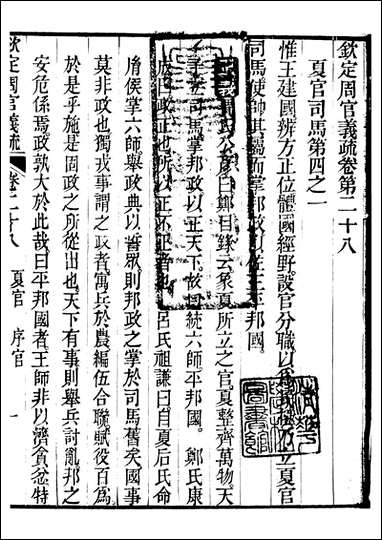 欽定周官義疏卷第二十八
夏官司馬第四之一
惟王建國辨方正位體國經野設官分職以爲民極乃立夏官
司馬使帥其屬而掌邦政以佐王平邦國
正義賈氏公彦曰鄭目録云象夏所立之官夏整齊萬物天
子立司馬掌邦政以正天下故曰統六師平邦國　鄭氏康
成曰政正也所以正不正者也　呂氏祖謙曰自夏后氏命
㣧侯掌六師舉政典以誓眾則邦政之掌於司馬舊矣國事
莫非政也獨戎事謂之政者寓兵於農編伍合聯賦役百爲
於是乎施是固政之所從出也天下有事則舉兵討亂邦之
安危係焉政孰大於此故曰平邦國者王師非以濟貪忿特
欽定周官義疏
卷二十八
夏官　序官
一